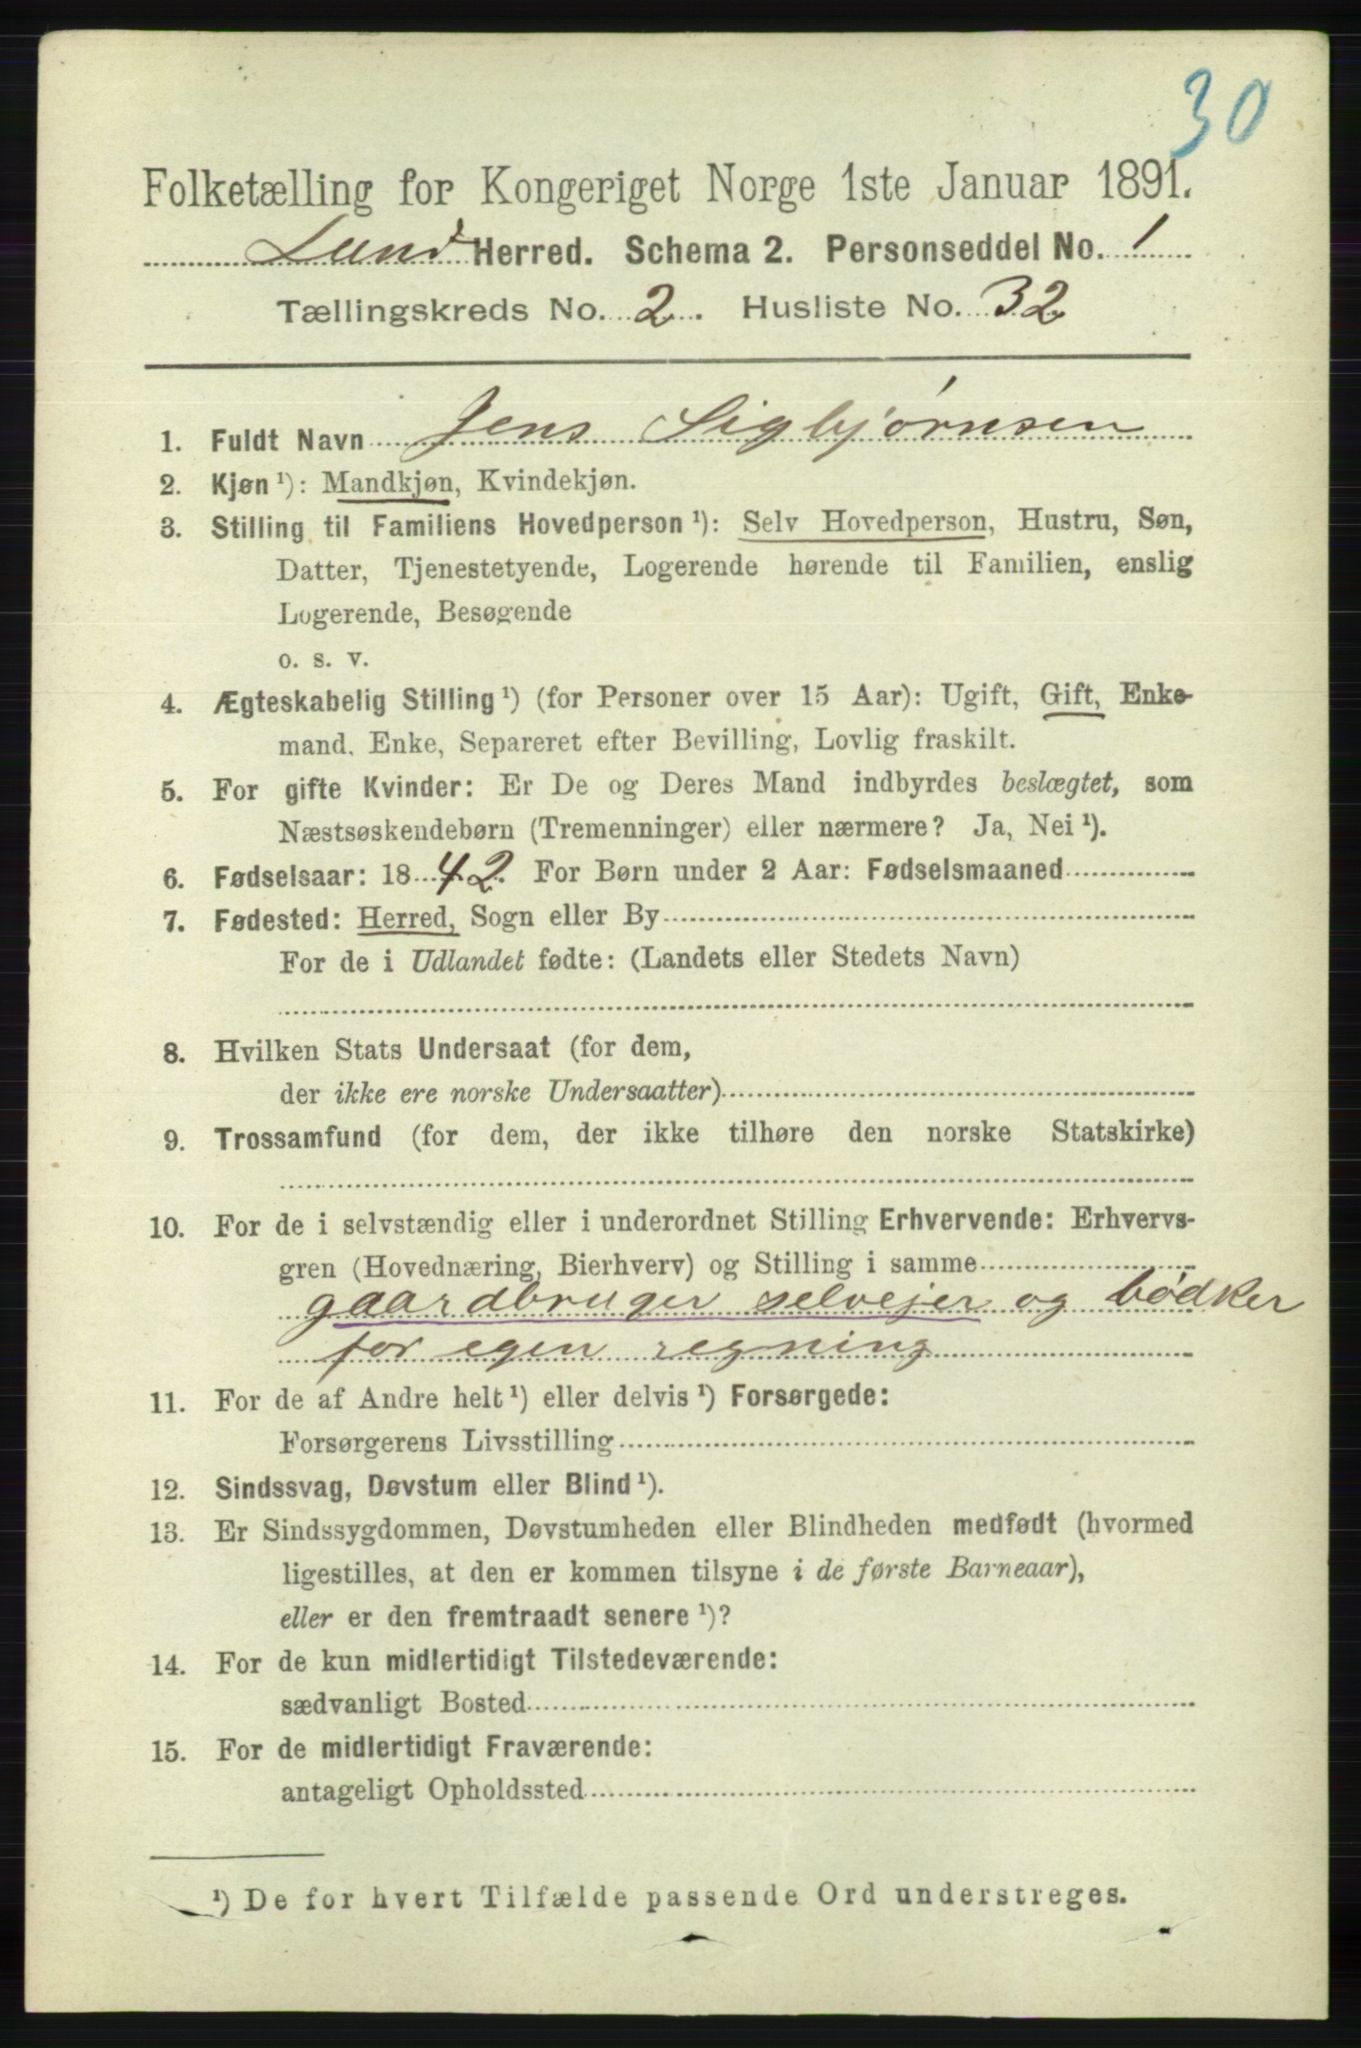 30
Folketælling for Kongeriget Norge 1ste Januar 1891.
Lund Herred. Schema 2. Personseddel No. 1
Tællingskreds No. 2. Husliste No. 32
1. Fuldt Navn Jens Sigbjørnsen
2. Kjøn ¹): Mandkjøn, Kvindekjøn.
3. Stilling til Familiens Hovedperson ¹): Selv Hovedperson, Hustru, Søn,
Datter, Tjenestetyende, Logerende hørende til Familien, enslig
Logerende, Besøgende
o. s. v.
4. Ægteskabelig Stilling ¹) (for Personer over 15 Aar): Ugift, Gift, Enke-
mand, Enke, Separeret efter Bevilling, Lovlig fraskilt.
5. For gifte Kvinder: Er De og Deres Mand indbyrdes beslægtet, som
Næstsøskendebørn (Tremenninger) eller nærmere? Ja, Nei ¹).
6. Fødselsaar: 1842. For Børn under 2 Aar: Fødselsmaaned
7. Fødested: Herred, Sogn eller By
For de i Udlandet fødte: (Landets eller Stedets Navn)
8. Hvilken Stats Undersaat (for dem,
der ikke ere norske Undersaatter)
9. Trossamfund (for dem, der ikke tilhøre den norske Statskirke)
10. For de i selvstændig eller i underordnet Stilling Erhvervende: Erhvervs-
gren (Hovednæring, Bierhverv) og Stilling i samme
gaardbruger selvejer og bødker
for egen regning
11. For de af Andre helt ¹) eller delvis ¹) Forsørgede:
Forsørgerens Livsstilling
12. Sindssvag, Døvstum eller Blind ¹).
13. Er Sindssygdommen, Døvstumheden eller Blindheden medfødt (hvormed
ligestilles, at den er kommen tilsyne i de første Barneaar),
eller er den fremtraadt senere ¹)?
14. For de kun midlertidigt Tilstedeværende:
sædvanligt Bosted
15. For de midlertidigt Fraværende:
antageligt Opholdssted
¹) De for hvert Tilfælde passende Ord understreges.